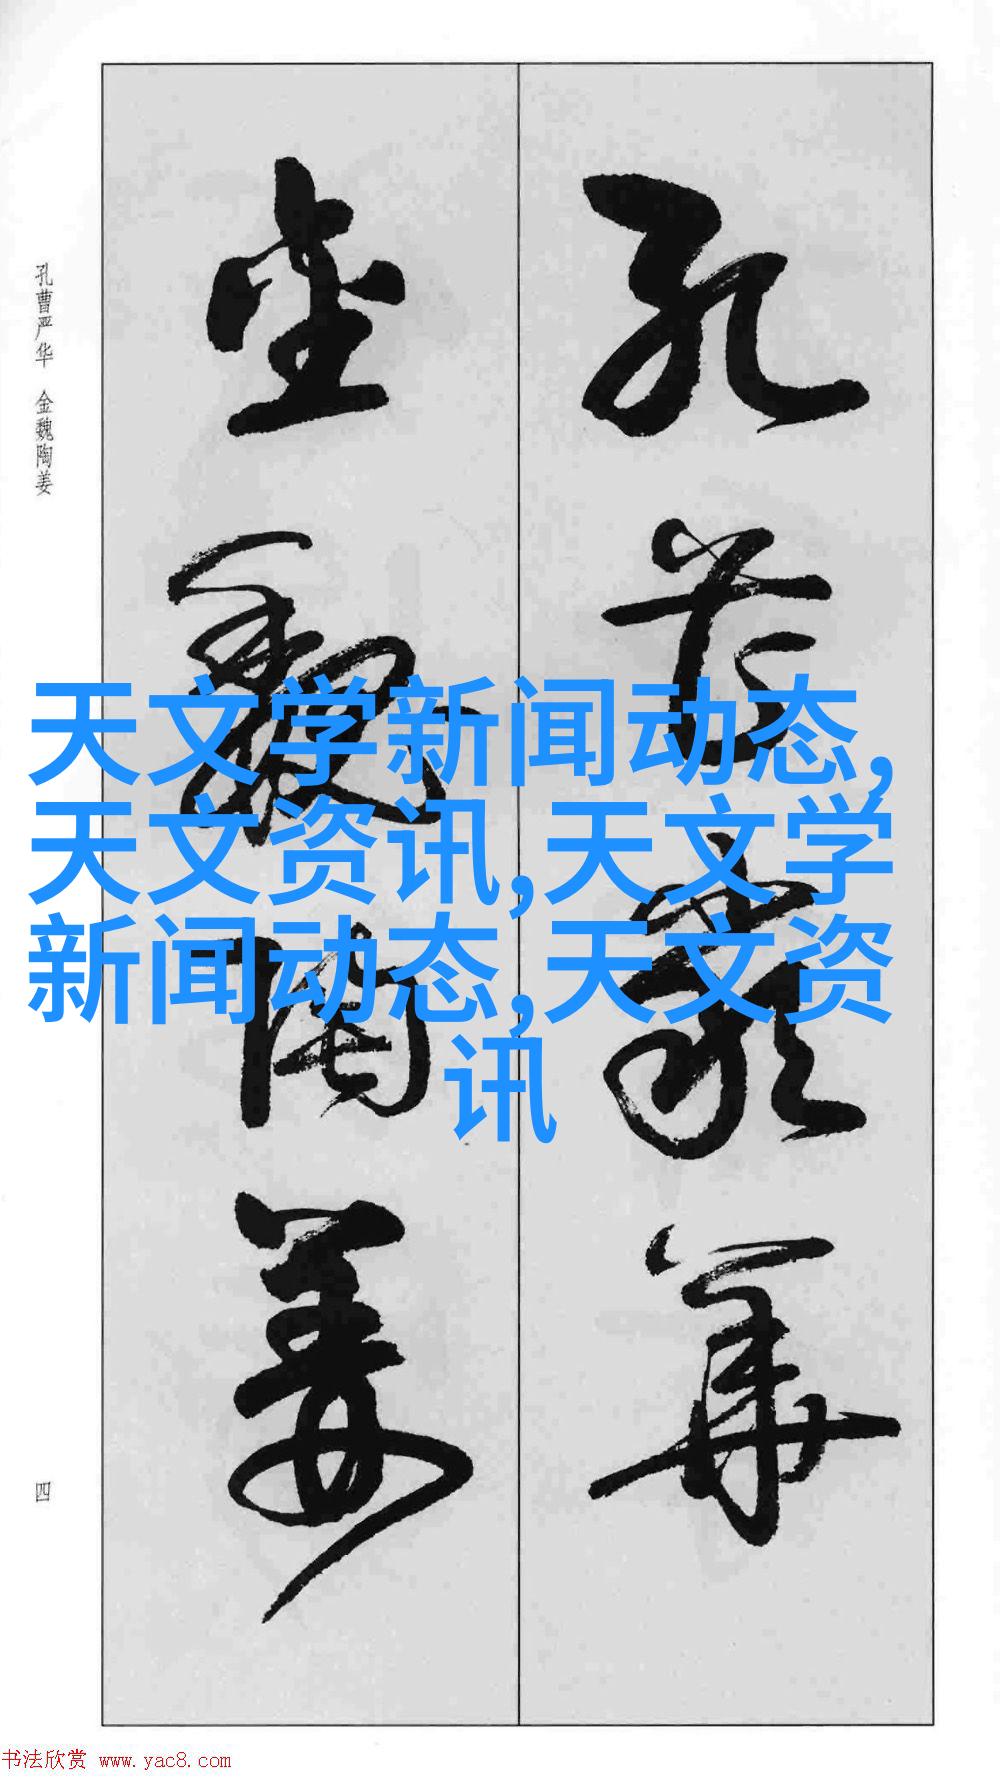 孔曹严华
金魏陶姜
孔曹严华 金魏陶姜
四
天文学新闻动态,
天文资讯,天文学
新闻动态,天文资
讯
书法欣赏 www.yac8.com